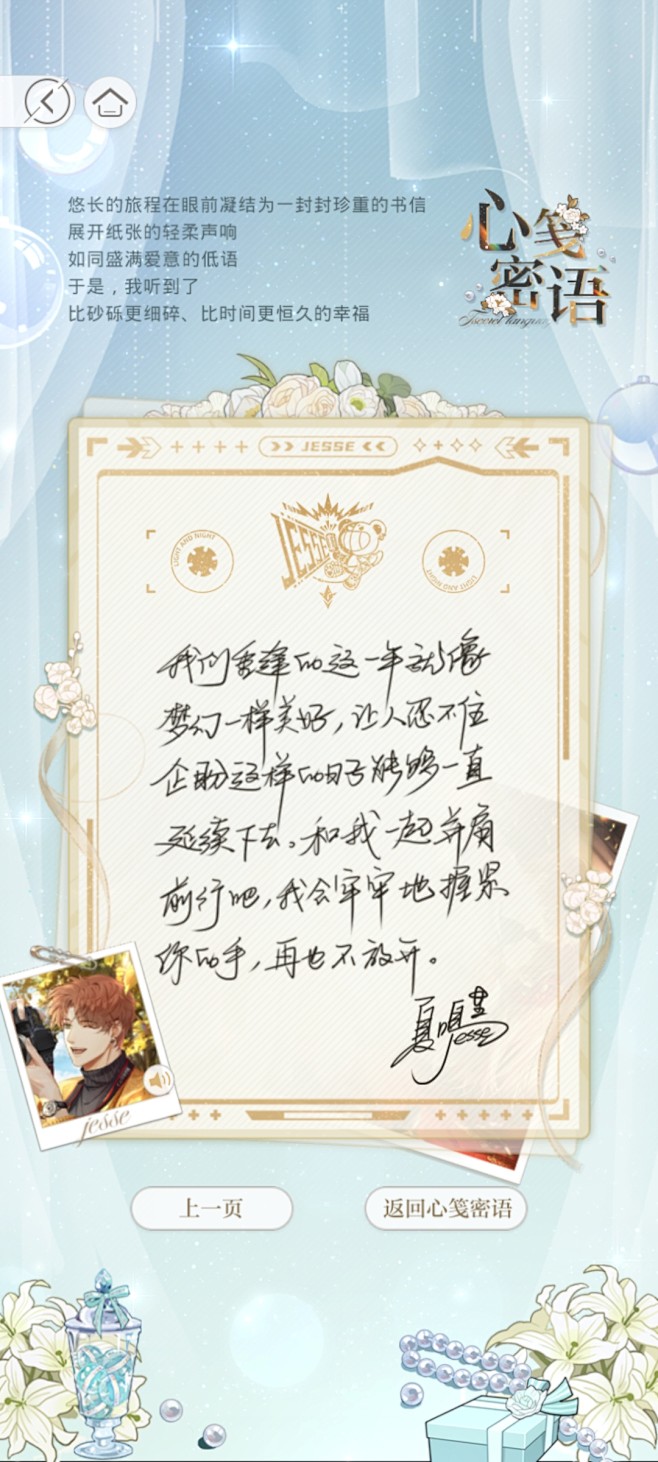 悠长的旅程在眼前凝结为一封封珍重的书信
展开纸张的轻柔声响
如同盛满爱意的低语
于是，我听到了
比砂砾更细碎、比时间更恒久的幸福
心笺
密语
JESSE
LIGHT AND NIGHT
JESSE
LIGHT AND NIGHT
我们重逢的这一年就像
梦幻一样美好，让人忍不住
企盼这样的日子能够一直
延续下去。和我一起并肩
前行吧，我会牢牢地握紧
你的手，再也不放开。
夏鸣星
Jesse
jesse
上一页
返回心笺密语